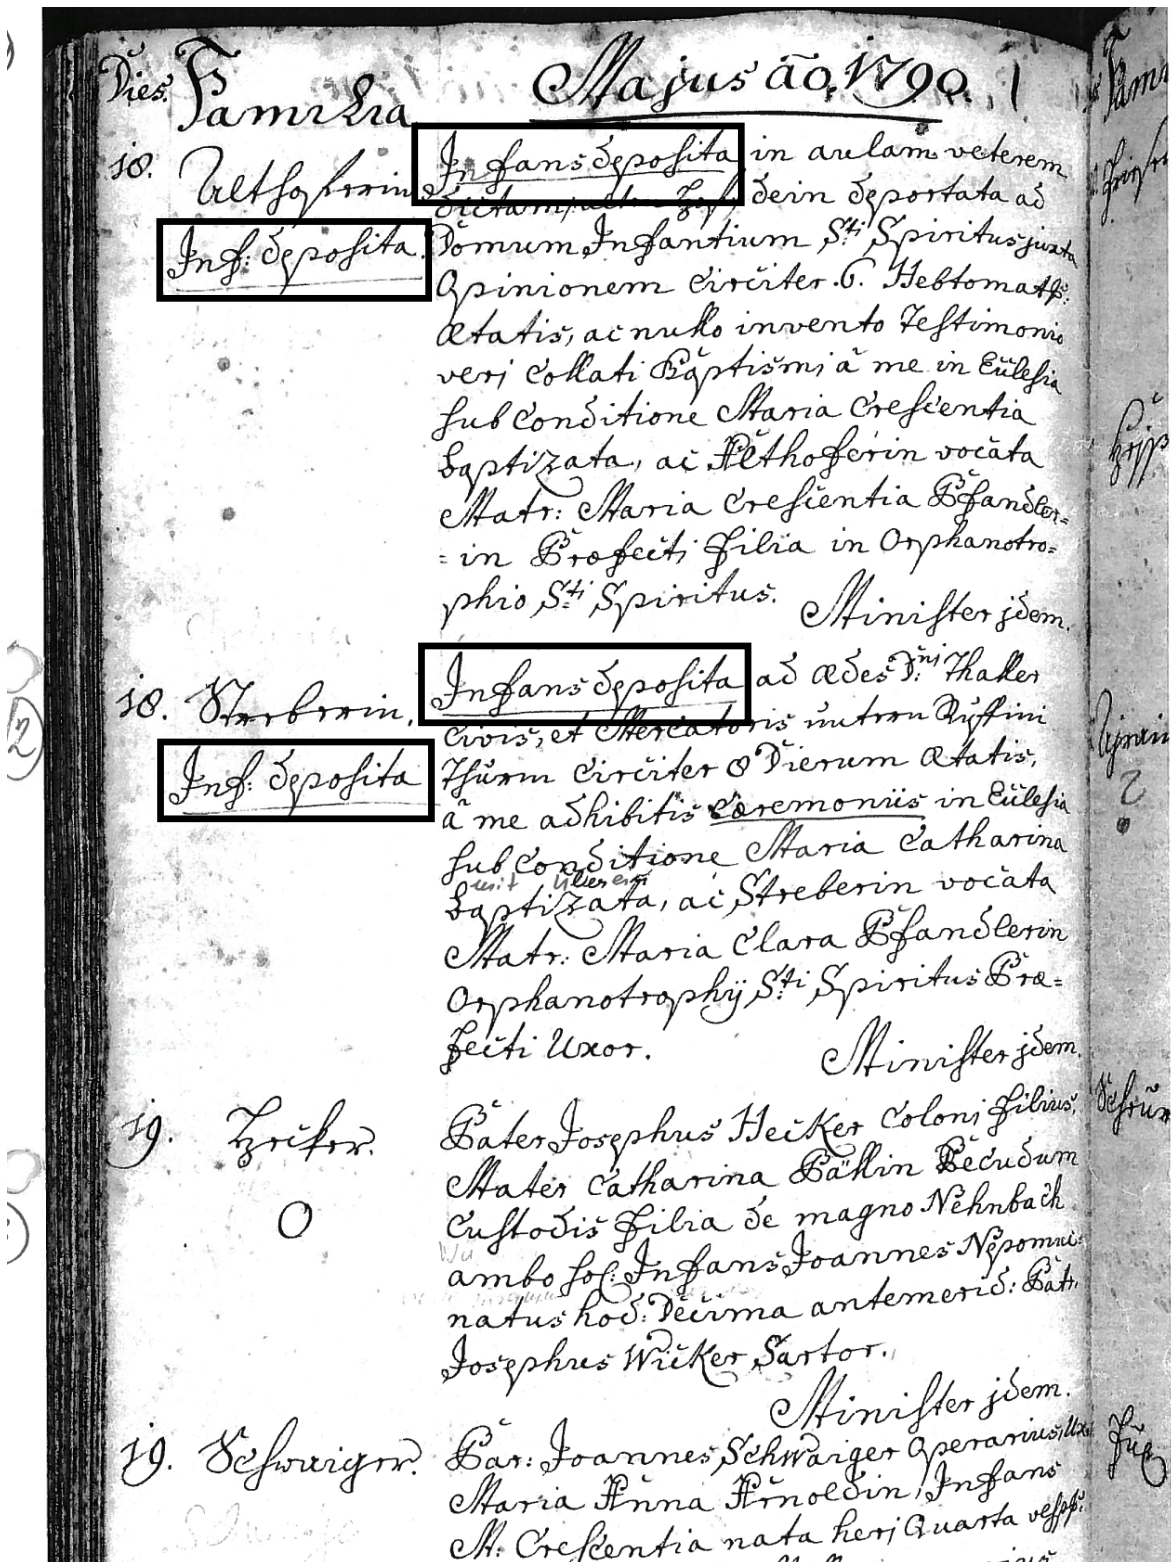 Dies. Familia Majus ao. 1790.
18. Althoferin Infans deposita in aulam veterem
dictam, dein deportata ad
Inf: deposita. Domum Infantium Sti Spiritus juxta
Opinionem circiter .6. Hebtomatb:
Ætatis, ac nullo invento Testimonio
veri collati Baptismi à me in Ecclesia
sub conditione Maria Crescentia
baptizata, ac Althoferin vocata
Matr: Maria Crescentia Pfandler=
=in Præfecti filia in Orphanotro=
phio Sti Spiritus.
Minister jdem.
18. Streberin. Infans deposita ad ædes D:ni Thaller
civis, et Mercatoris unterm Ruffini
Inf: deposita Thurm circiter 8 Dierum ætatis,
à me adhibitis Cæremoniis in Ecclesia
sub conditione Maria Catharina
baptizata, ac Streberin vocata
Matr: Maria Clara Pfandlerin
Orphanotrophij Sti Spiritus Præ=
fecti Uxor.
Minister jdem.
19. Hecker. Pater Josephus Hecker Coloni filius,
Mater Catharina Bällin Pecudum
O Custodis filia de magno Nehnbach
ambo sol: Infans Joannes Nepomuc:
natus hod: Decima antemerid: Patr:
Josephus Wicker Sartor.
Minister jdem.
19. Schwaiger. Par: Joannes Schwaiger Operarius, Ux.
Maria Anna Arnoldin, Infans
M. Crescentia nata heri Quarta vesp: